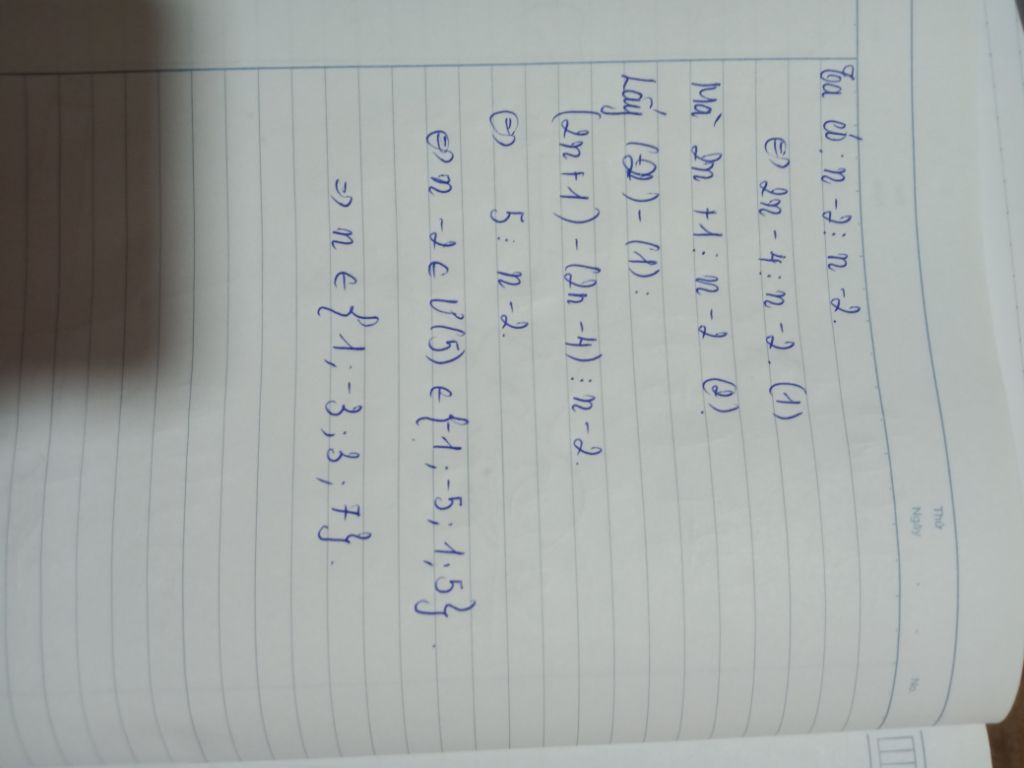 Ta có: n - 2 ⋮ n - 2.
⇔ 2n - 4 ⋮ n - 2. (1)
Mà 2n + 1 ⋮ n - 2 (2)
Lấy (2) - (1):
(2n + 1) - (2n - 4) ⋮ n - 2.
⇔ 5 ⋮ n - 2.
⇔ n - 2 ∈ Ư(5) ∈ {-1; -5; 1; 5}.
⇒ n ∈ {1; -3; 3; 7}.
Thứ
Ngày
No.